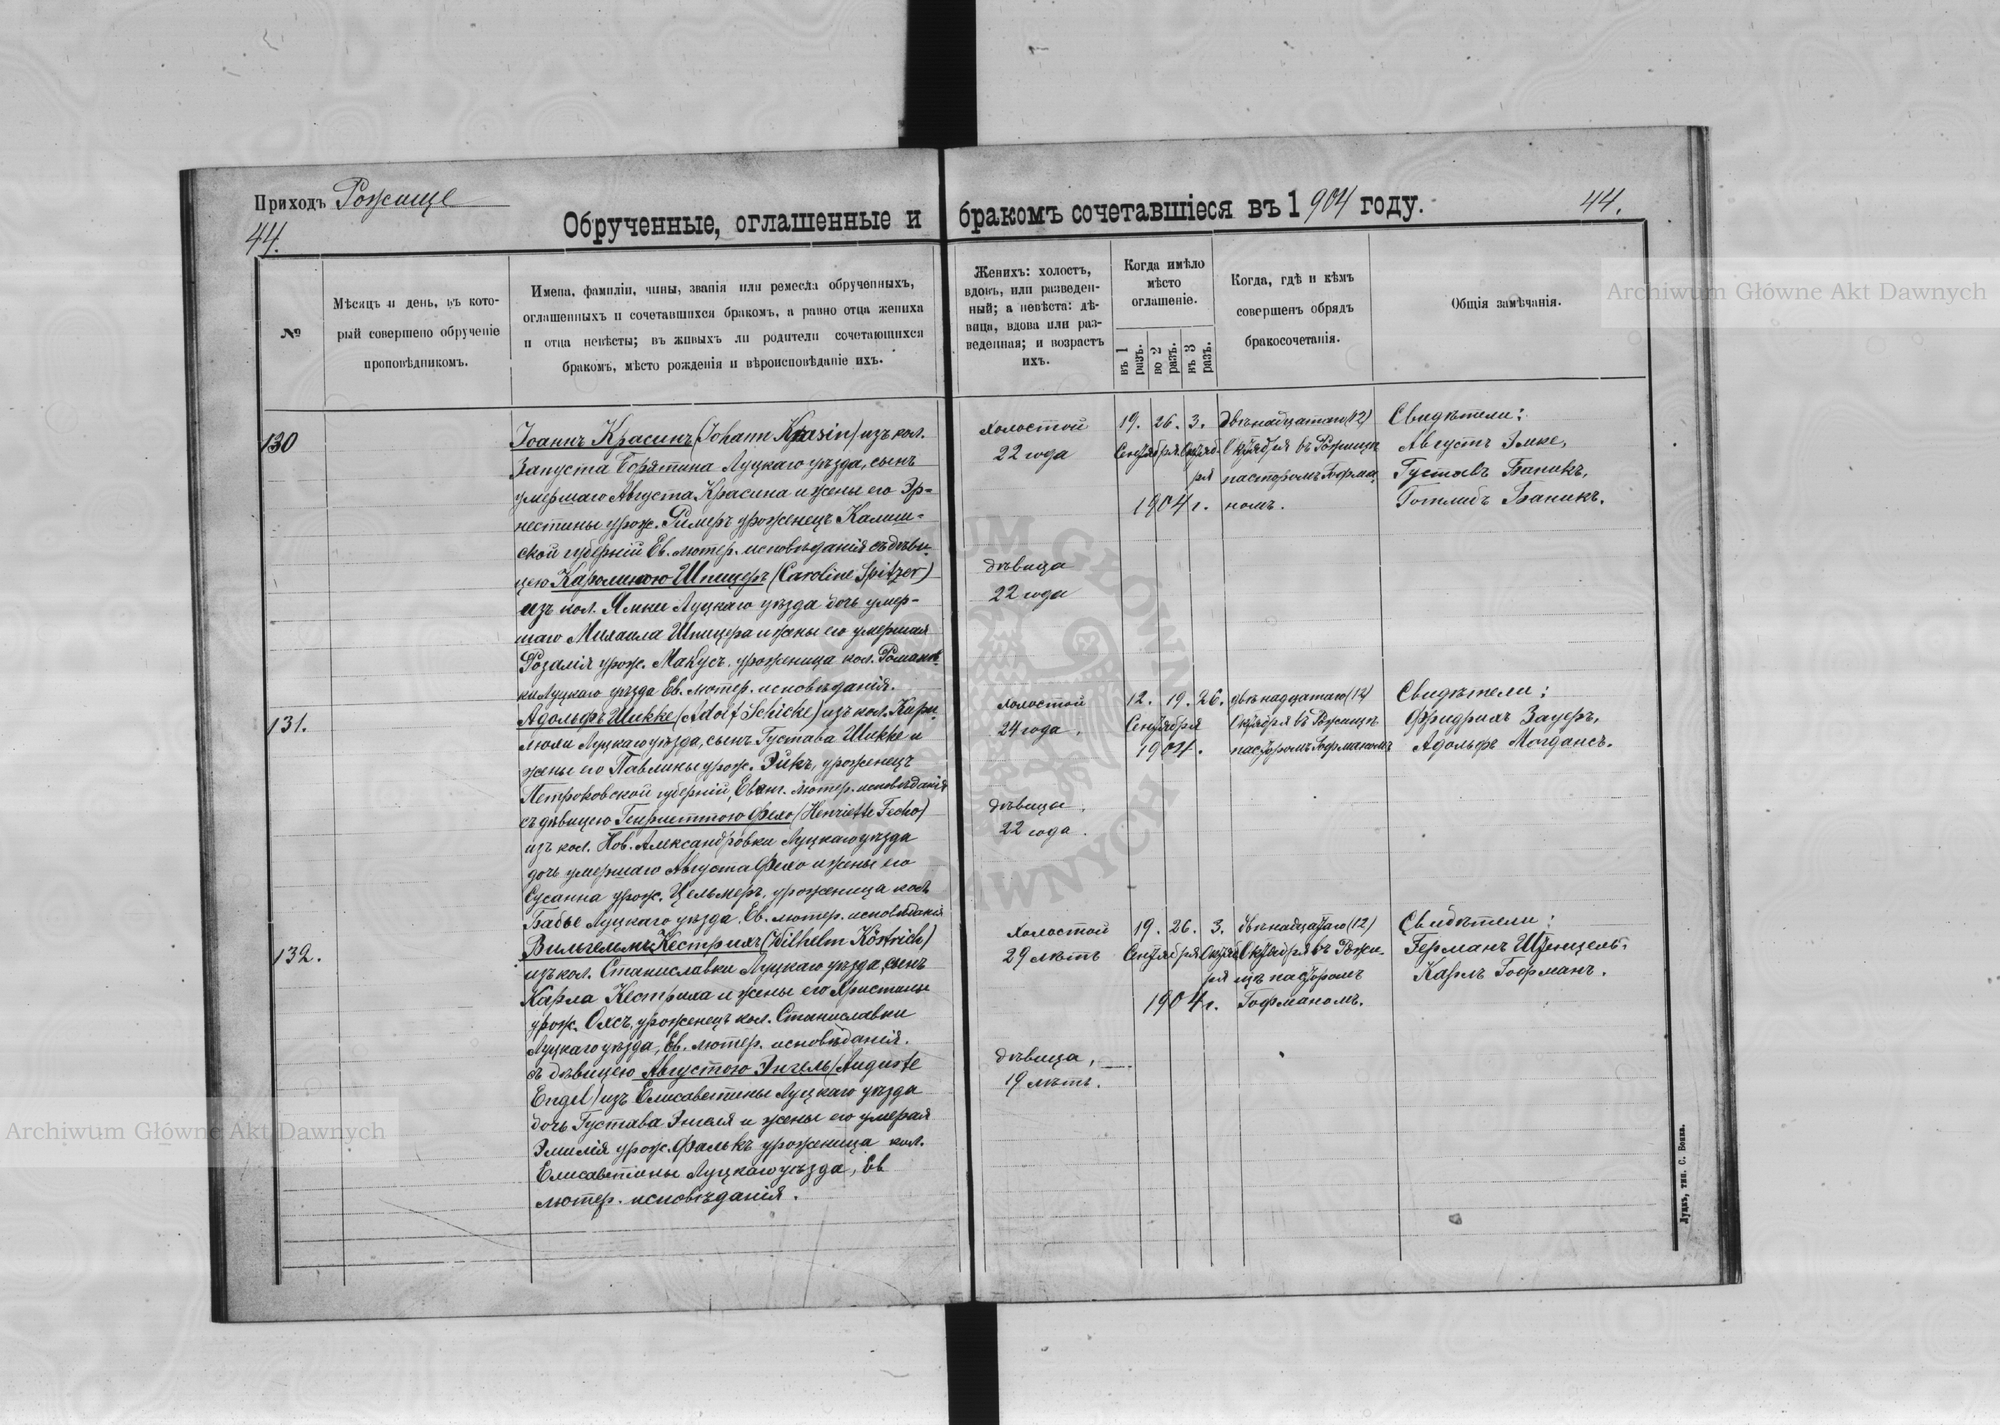 Приходъ Рожище
44.
Обрученные, оглашенные и бракомъ сочетавшіеся въ 1904 году.
44.
№
Мѣсяцъ и день, въ кото-
рый совершено обрученіе
проповѣдникомъ.
Имена, фамиліи, чины, званія или ремесла обрученныхъ,
оглашенныхъ и сочетавшихся бракомъ, а равно отца жениха
и отца невѣсты; въ живыхъ ли родители сочетающихся
бракомъ, мѣсто рожденія и вѣроисповѣданіе ихъ.
Женихъ: холостъ,
вдовъ, или разведен-
ный; а невѣста: дѣ-
вица, вдова или раз-
веденная; и возрастъ
ихъ.
Когда имѣло
мѣсто
оглашеніе.
въ 1
разъ.
во 2
разъ.
въ 3
разъ.
Когда, гдѣ и кѣмъ
совершенъ обрядъ
бракосочетанія.
Общія замѣчанія.
130
Іоаннъ Красинъ (Johann Krasin) изъ кол.
Запуста Борятина Луцкаго уѣзда, сынъ
умершаго Августа Красина и жены его Эр-
нестины урож. Ример, уроженецъ Калиш-
ской губерніи Ев. лютер. исповѣданія съ дѣви-
цею Каролиною Шпицеръ (Caroline Spitzer)
изъ кол. Ямки Луцкаго уѣзда дочь умер-
шаго Михаила Шпицера и жены его умершая
Розалія урож. Макусъ, уроженица кол. Романов-
ки Луцкаго уѣзда Ев. лютер. исповѣданія.
холостой
22 года
дѣвица
22 года
19. 26. 3.
Сентября Октяб-
ря
1904 г.
двѣнадцатаго (12)
Октября въ Рожищѣ
пасторомъ Гофма-
номъ.
Свидѣтели:
Августъ Эмке,
Густавъ Баникъ,
Готлибъ Баникъ.
131.
Адольфъ Шикке (Adolf Schicke) изъ кол.
Луцкаго уѣзда, сынъ Густава Шикке и
жены его Павлины урож. Эйкъ, уроженецъ
Петроковской губерніи, Еванг. лютер. исповѣданія
съ дѣвицею Генріеттою Фехо (Henriette Fecho)
изъ кол. Нов. Александровки Луцкаго уѣзда
дочь умершаго Августа Фехо и жены его
Сусанна урож. Цельмеръ, уроженица кол.
Бабье Луцкаго уѣзда. Ев. лютер. исповѣданія
холостой
24 года.
дѣвица.
22 года.
12. 19. 26.
Сентября
1904 г.
двѣнадцатаго (12)
Октября въ Рожищѣ
пасторомъ Гофманомъ
Свидѣтели:
Фридрихъ Зауеръ,
Адольфъ Могдансъ.
132.
Вильгельмъ Кестрихъ (Wilhelm Köstrich)
изъ кол. Станиславки Луцкаго уѣзда, сынъ
Карла Кестриха и жены его Христины
урож. Охсъ, уроженецъ кол. Станиславки
Луцкаго уѣзда, Ев. лютер. исповѣданія.
съ дѣвицею Августою Энгель (Auguste
Engel) изъ Елисаветины Луцкаго уѣзда
дочь Густава Энгеля и жены его умерая
Эмилія урож. Фалькъ уроженица кол.
Елисаветины Луцкаго уѣзда, Ев
лютер. исповѣданія.
холостой
29 лѣтъ
дѣвица,
19 лѣтъ.
19. 26. 3.
Сентября Октяб-
ря
1904 г.
двѣнадцатаго (12)
Октября въ Рожи-
щѣ пасторомъ
Гофманомъ.
Свидѣтели:
Германъ Штенцель,
Карлъ Гофманъ.
Луцкъ, тип. С. Бокка.
Archiwum Główne Akt Dawnych
Archiwum Główne Akt Dawnych